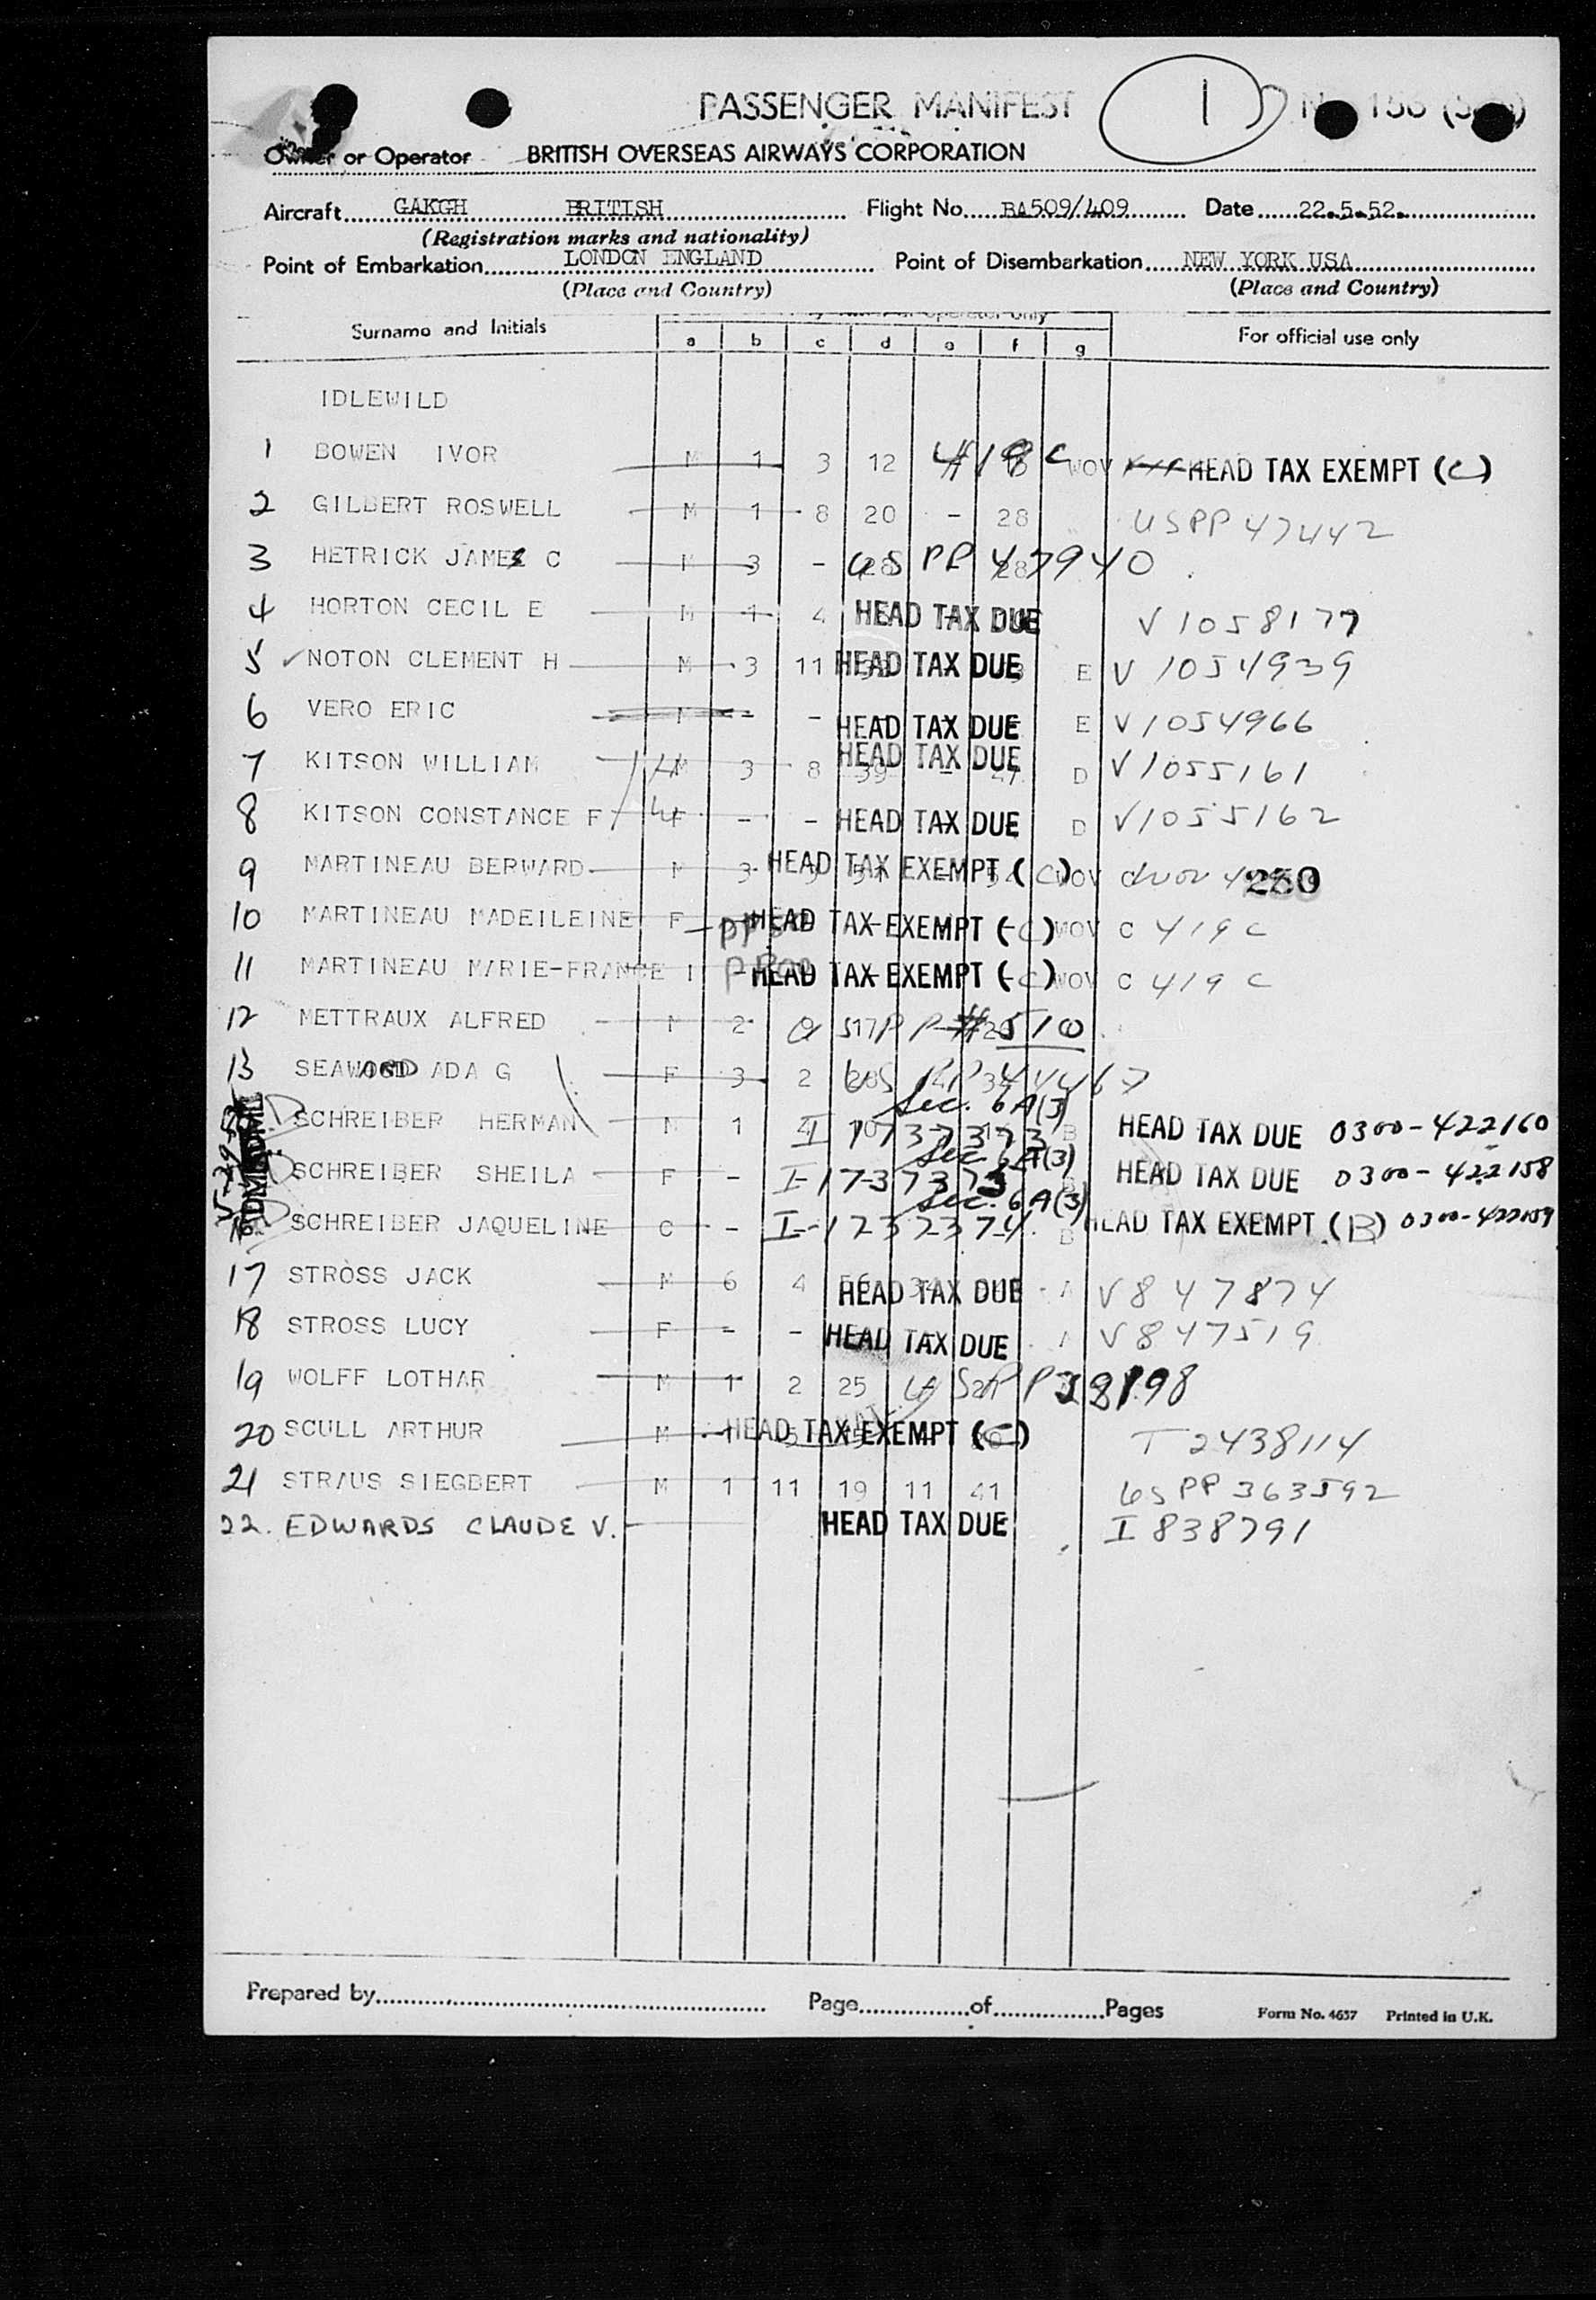 PASSENGER MANIFEST 1
Owner or Operator BRITISH OVERSEAS AIRWAYS CORPORATION
Aircraft GAKGH BRITISH Flight No. BA509/409 Date 22.5.52.
(Registration marks and nationality)
Point of Embarkation LONDON ENGLAND Point of Disembarkation NEW YORK USA
(Place and Country) (Place and Country)
Surname and Initials operator only For official use only
a b c d e f g
IDLEWILD
1 BOWEN IVOR M 1 3 12 WOV HEAD TAX EXEMPT (C)
2 GILBERT ROSWELL M 1 8 20 - 28 USPP 47442
3 HETRICK JAMES C M 3 - US PP 47940
4 HORTON CECIL E M 1 4 HEAD TAX DUE V 1058177
5 NOTON CLEMENT H M 3 11 HEAD TAX DUE E V 1054939
6 VERO ERIC M - - HEAD TAX DUE E V1054966
7 KITSON WILLIAM M 3 8 39 - 47 HEAD TAX DUE D V1055161
8 KITSON CONSTANCE F F - - HEAD TAX DUE D V1055162
9 MARTINEAU BERWARD M 3 HEAD TAX EXEMPT (C) WOV 280
10 MARTINEAU MADEILEINE F HEAD TAX EXEMPT (C) WOV C 419 C
11 MARTINEAU MARIE-FRANCE I HEAD TAX EXEMPT (C) WOV C 419 C
12 METTRAUX ALFRED M 2 PP # 510
13 SEAWOOD ADA G F 3 2 US PP
Sec. 6A(3)
SCHREIBER HERMAN M 1 4 I 1737373 B HEAD TAX DUE 0300-422160
Sec. 6A(3)
SCHREIBER SHEILA F - I-1737373 HEAD TAX DUE 0300-422158
Sec. 6A(3)
16 SCHREIBER JAQUELINE C - I-1232374 B HEAD TAX EXEMPT (B) 0300-422159
17 STROSS JACK M 6 4 56 HEAD TAX DUE A V847874
18 STROSS LUCY F - - HEAD TAX DUE A V847519
19 WOLFF LOTHAR M 1 2 25 US PP 38198
20 SCULL ARTHUR M 1 5 HEAD TAX EXEMPT (C) T 2438114
21 STRAUS SIEGBERT M 1 11 19 11 41 US PP 363592
22. EDWARDS CLAUDE V. HEAD TAX DUE I 838791
Prepared by Page of Pages Form No. 4657 Printed in U.K.